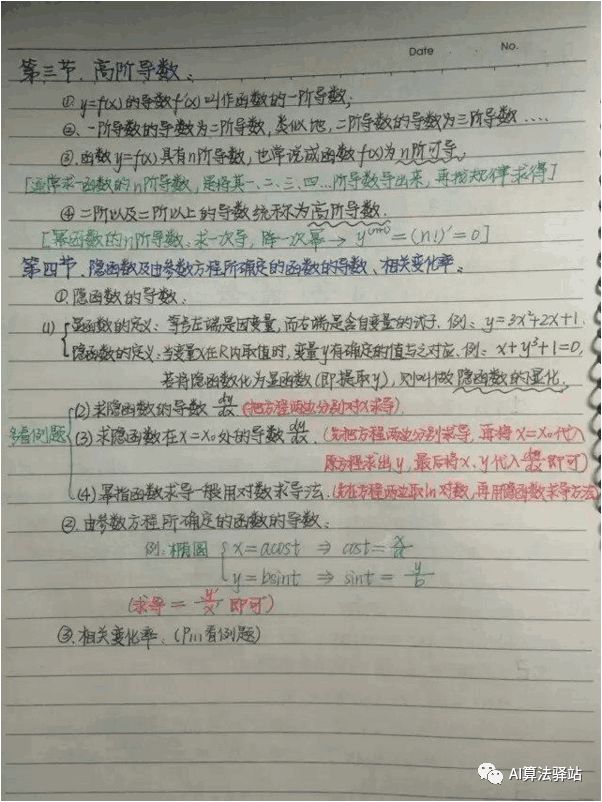 Date . . No.
第三节、高阶导数:
①. y=f(x)的导数f'(x)叫作函数的一阶导数;
②. 一阶导数的导数为二阶导数,类似地,二阶导数的导数为三阶导数....
③.函数y=f(x)具有n阶导数,也常说成函数f(x)为n阶可导。
[通常求一函数的n阶导数,是将其一、二、三、四...阶导数导出来,再找规律求得]
④二阶以及二阶以上的导数统称为高阶导数.
[幂函数的n阶导数:求一次导,降一次幂→ y⁽ⁿ⁺¹⁾=(n!)'=0]
第四节、隐函数及由参数方程所确定的函数的导数、相关变化率。
①.隐函数的导数:
(1) 显函数的定义:等号左端是因变量,而右端是含自变量的式子.例: y=3x²+2x+1.
隐函数的定义:当变量x在R内取值时,变量y有确定的值与之对应.例: x+y³+1=0,
若将隐函数化为显函数(即提取y),则叫做隐函数的显化.
(2)求隐函数的导数 dy/dx (把方程两边分别对x求导).
多看例题 (3)求隐函数在x=x₀处的导数 dy/dx. (先把方程两边分别求导,再将x=x₀代入
原方程求出y,最后将x、y代入dy/dx即可)
(4)幂指函数求导一般用对数求导法.(先在方程两边取ln对数,再用隐函数求导方法)
②.由参数方程所确定的函数的导数:
例:椭圆 x=acost ⇒ cost=x/a
y=bsint ⇒ sint=y/b
(求导= y'/x' 即可)
③.相关变化率:(P111看例题)
AI算法驿站